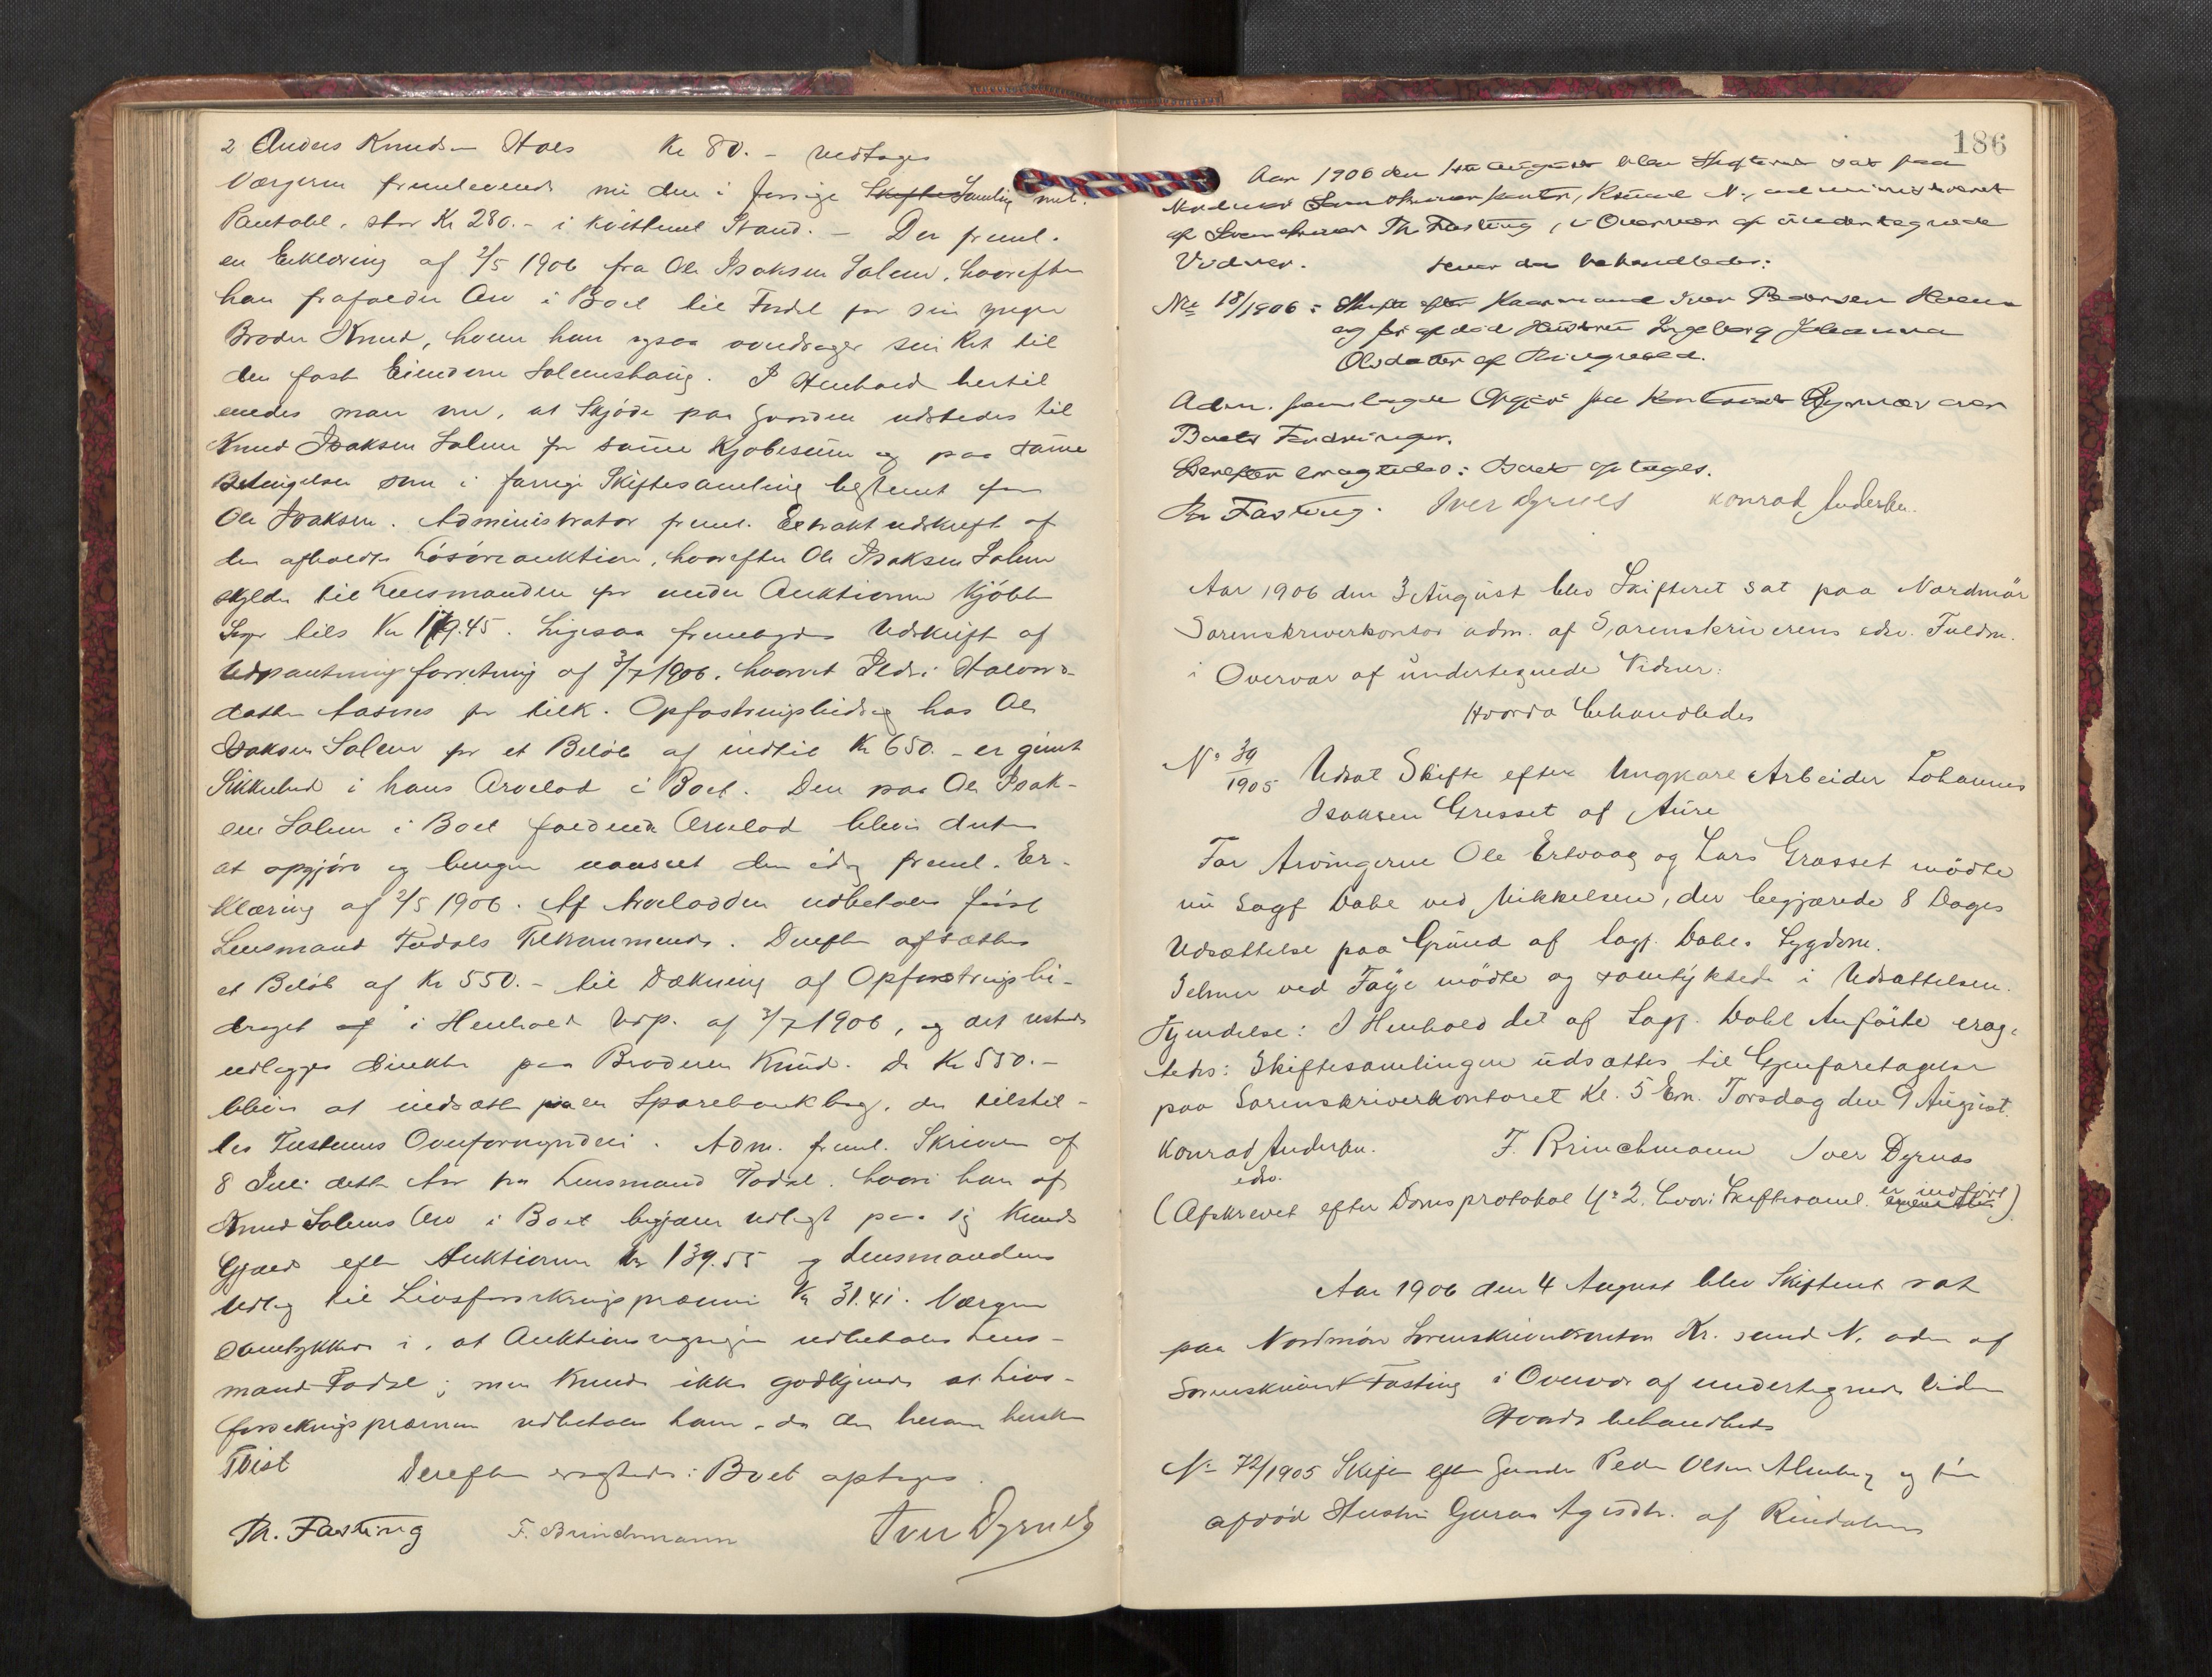 2 Anders Knudsen Hals Kr 80.- vedtages
Værgerne fremleverede nu den i forrige Skifte Samling
Pantobl. stor Kr 280.- i kvitteret Stand. - Der freml.
en Erklæring af 2/5 1906 fra Ole Isaksen Salen, hvorefter
han frafalder Arv i Boet til Fordel for sin yngre
Broder Knud, hvem han ogsaa overdrager sin Ret til
den faste Eiendom Solemshaug. I Henhold hertil
enedes man om, at Skjøde paa Gaarden udstedes til
Knud Isaksen Solem for samme Kjøbesum og paa samme
Betingelser som i forrige Skiftesamling bestemt for
Ole Isaksen. Administrator freml. Extraktudskrift af
den afholdte Løsøreauktion, hvorefter Ole Isaksen Solem
skylder til Lensmanden for under Auktionen kjøbte
Sager tils Kr 179.45. Ligesaa fremlagdes Udskrift af
Udpantningsforretning af 3/7 1906, hvorved Ildri Halvors-
datter for tilk. Opfostringsbidrag hos Ole
Isaksen Solem for et Beløb af indtil Kr 650.- er givet
Sikkerhed i hans Arvelod i Boet. Den paa Ole Isak-
sen Solem i Boet faldende Arvelod bliver derfor
at opgjøre og beregne uanseet den idag freml. Er-
klæring af 2/5 1906. Af Arvelodden udbetales først
Lensmand Todals Tilkommende. Derefter afsættes
et Beløb af Kr 550.- til Dækning af Opfostringsbi-
draget af i Henhold Udp. af 3/7 1906, og det resterende
udlægges direkte paa Broderen Knud. De Kr 550.-
bliver at indsætte paa en Sparebankbog, der tilstil-
les Tusterens Overformynderi. Adm. freml. Skrivelse af
8 Juli dette Aar fra Lensmand Todal, hvori han af
Knud Solems Arv i Boet begjærer udlagt paa sig Knuds
Gjæld efter Auktionen Kr 139.55 og Lensmandens
Udlæg til Livsforsikringspræmie Kr 31.41. Værgen
samtykker i, at Auktionsregningen udbetales Lens-
mand Todal; men Knud ikke godkjender at Livs-
forsikringspræmien udbetales ham, da der herom hersker
Tvist Derefter eragtedes: Boet optages.
Th. Fasting F. Brinchmann Iver Dyrnes
186
Aar 1906 den 1ste August blev Skifteret sat paa
Nordmøre Sorenskriverkontor, Krsund N., administreret
af Sorenskriver Th. Fasting, i Overvær af undertegnede
Vidner. Hvor da behandledes:
No 18/1906: Skifte efter Kaarmand Iver Pedersen Holen
og før afdød Hustru Ingeborg Johanna
Olsdatter af Tingvold.
Adm. fremlagde Opgjør fra Kontorist Dyrnes over
Boets Fordringer.
Derefter eragtedes: Boet optages.
Th. Fasting. Iver Dyrnes Konrad Andersen.
Aar 1906 den 3 August blev Skifteret sat paa Nordmør
Sorenskriverkontor adm. af Sorenskriverens edsv. Fuldm.
i Overvær af undertegnede Vidner.
Hvorda behandledes
No 39/1905 Udsat Skifte efter Ungkarl Arbeider Johannes
Isaksen Grisset af Aure
For Arvingerne Ole Ertvaag og Lars Grasset mødte
nu Sagf Dahl ved Mikkelsen, der begjærede 8 Dages
Udsættelse paa Grund af Sagf. Dahls Sygdom.
Selmer ved Faye mødte og samtykkede i Udsættelsen.
Kjendelse: I Henhold det af Sagf. Dahl Anførte erag-
tedes: Skiftesamlingen udsættes til Gjenforetagelse
paa Sorenskriverkontoret Kl. 5 Em. Torsdag den 9 August.
Konrad Andersen. F. Brinchmann Iver Dyrnes
edsv.
(Afskrevet efter Domsprotokol No 2, hvori Skiftesaml. er indført)
Aar 1906 den 4 August blev Skifteret sat
paa Nordmøre Sorenskriverkontor Kr. sund N. adm af
Sorenskriver Fasting i Overvær af undertegnede Vidner
Hvorda behandledes
No 72/1905 Skifte efter Gaardm Peder Olsen Almberg og før
afdød Hustru Guroa Agesdtr. af Rindalen